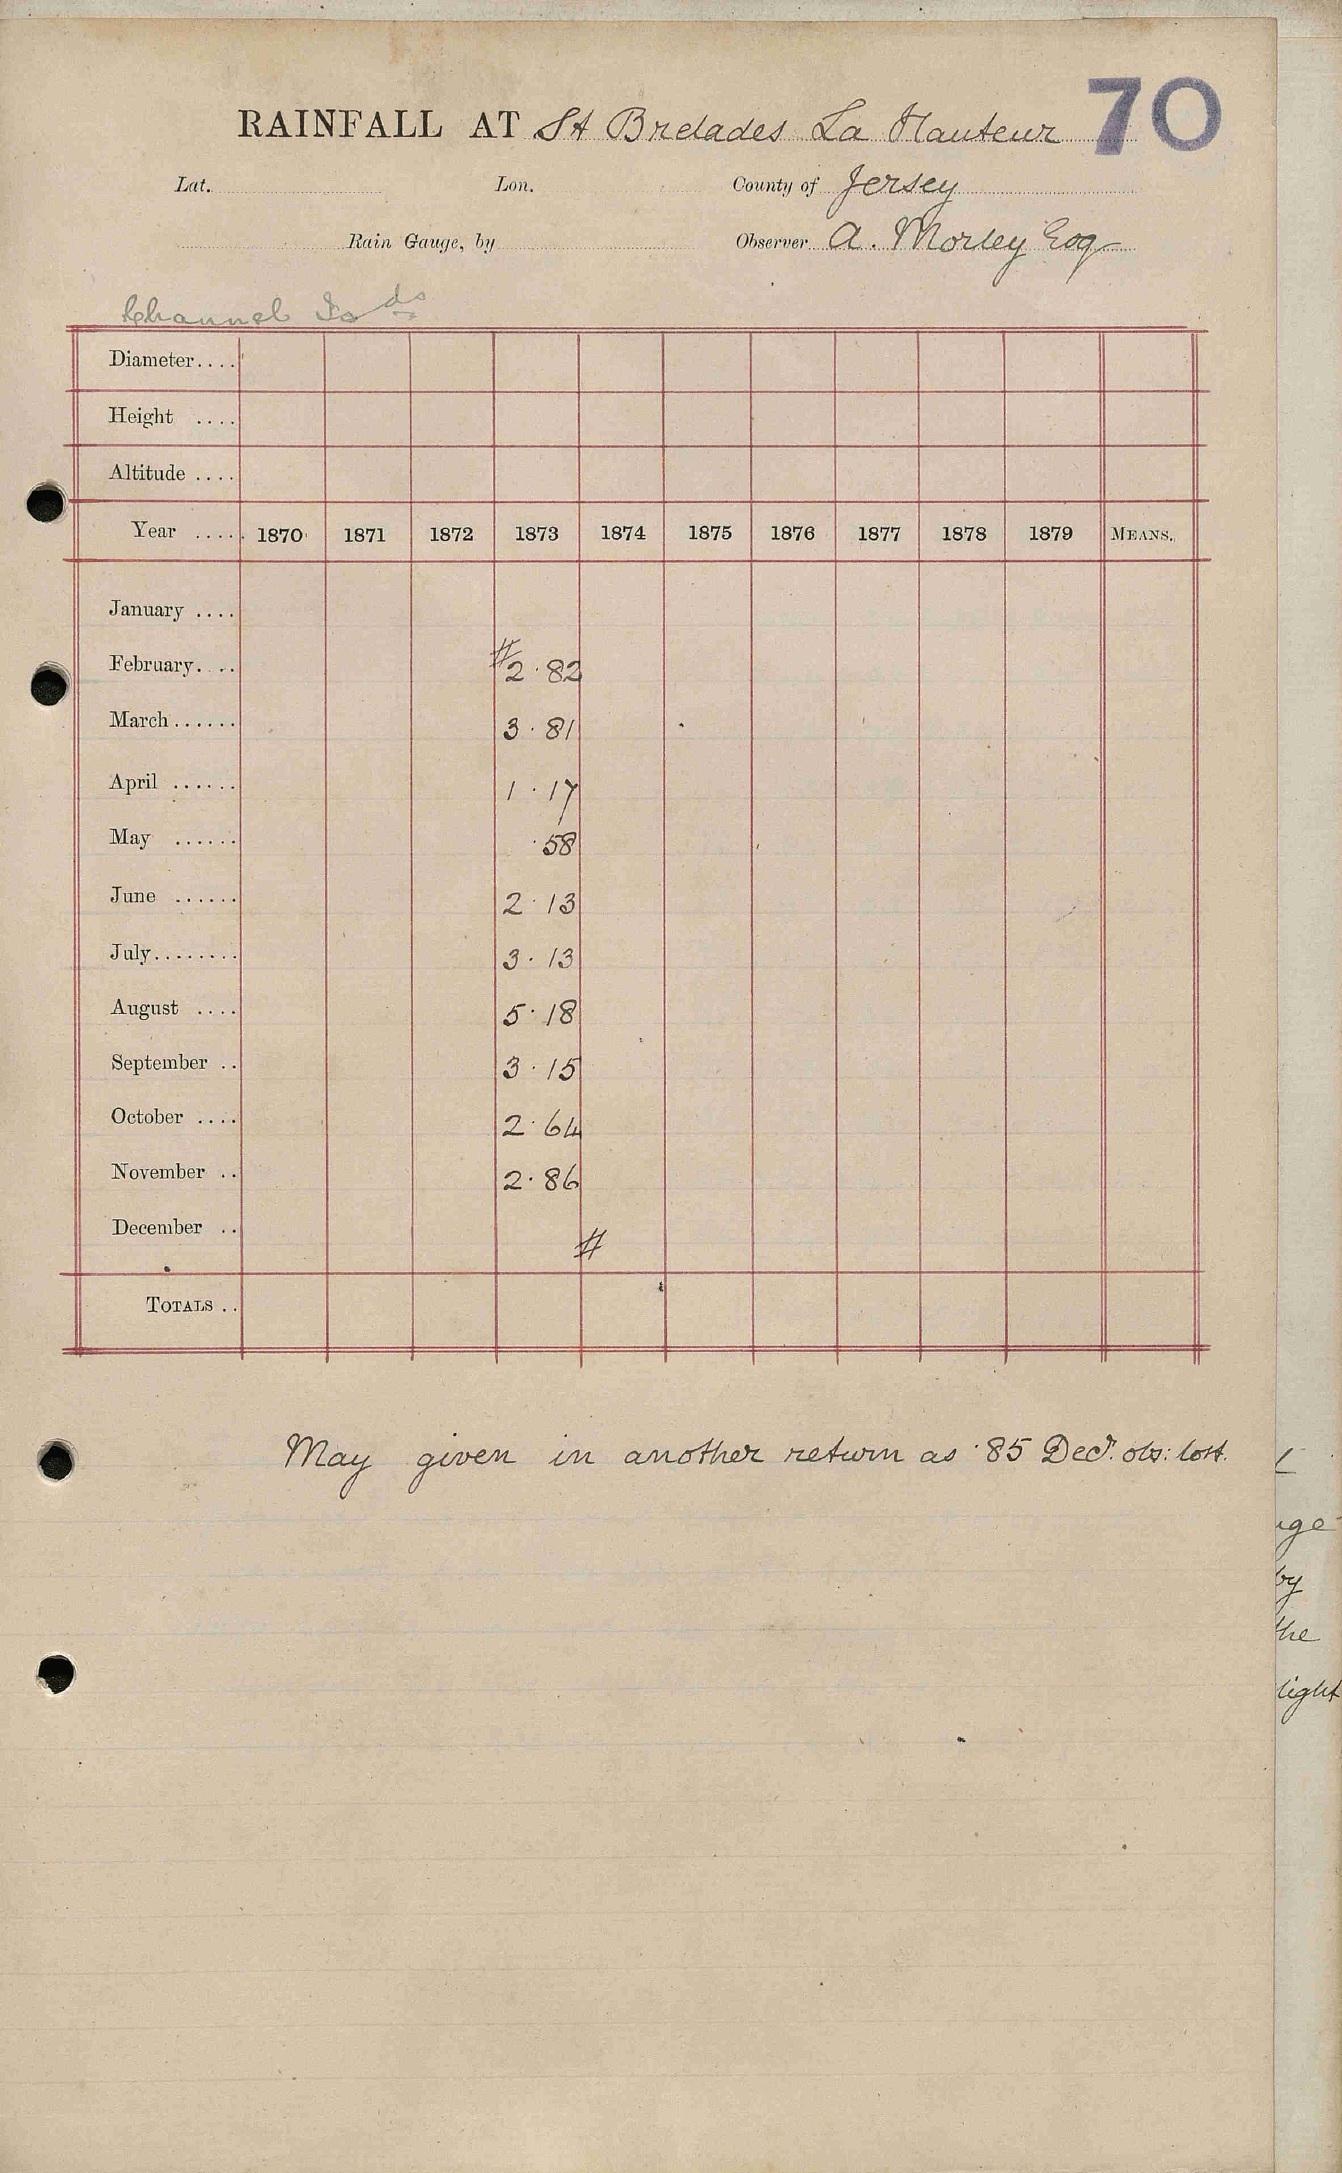 70
RAINFALL AT St Brelades La Hauteur
Lat. Lon. County of Jersey
Rain Gauge, by Observer A. Morley Esq
Channel Isds
Diameter....
Height ....
Altitude ....
Year .... 1870 1871 1872 1873 1874 1875 1876 1877 1878 1879 MEANS.
January ....
February.... # 2.82
March...... 3.81
April ...... 1.17
May ...... .58
June ...... 2.13
July........ 3.13
August .... 5.18
September .. 3.15
October .... 2.64
November .. 2.86
December .. #
TOTALS ..
May given in another return as .85 Decr. obs: lost.
by
the
light